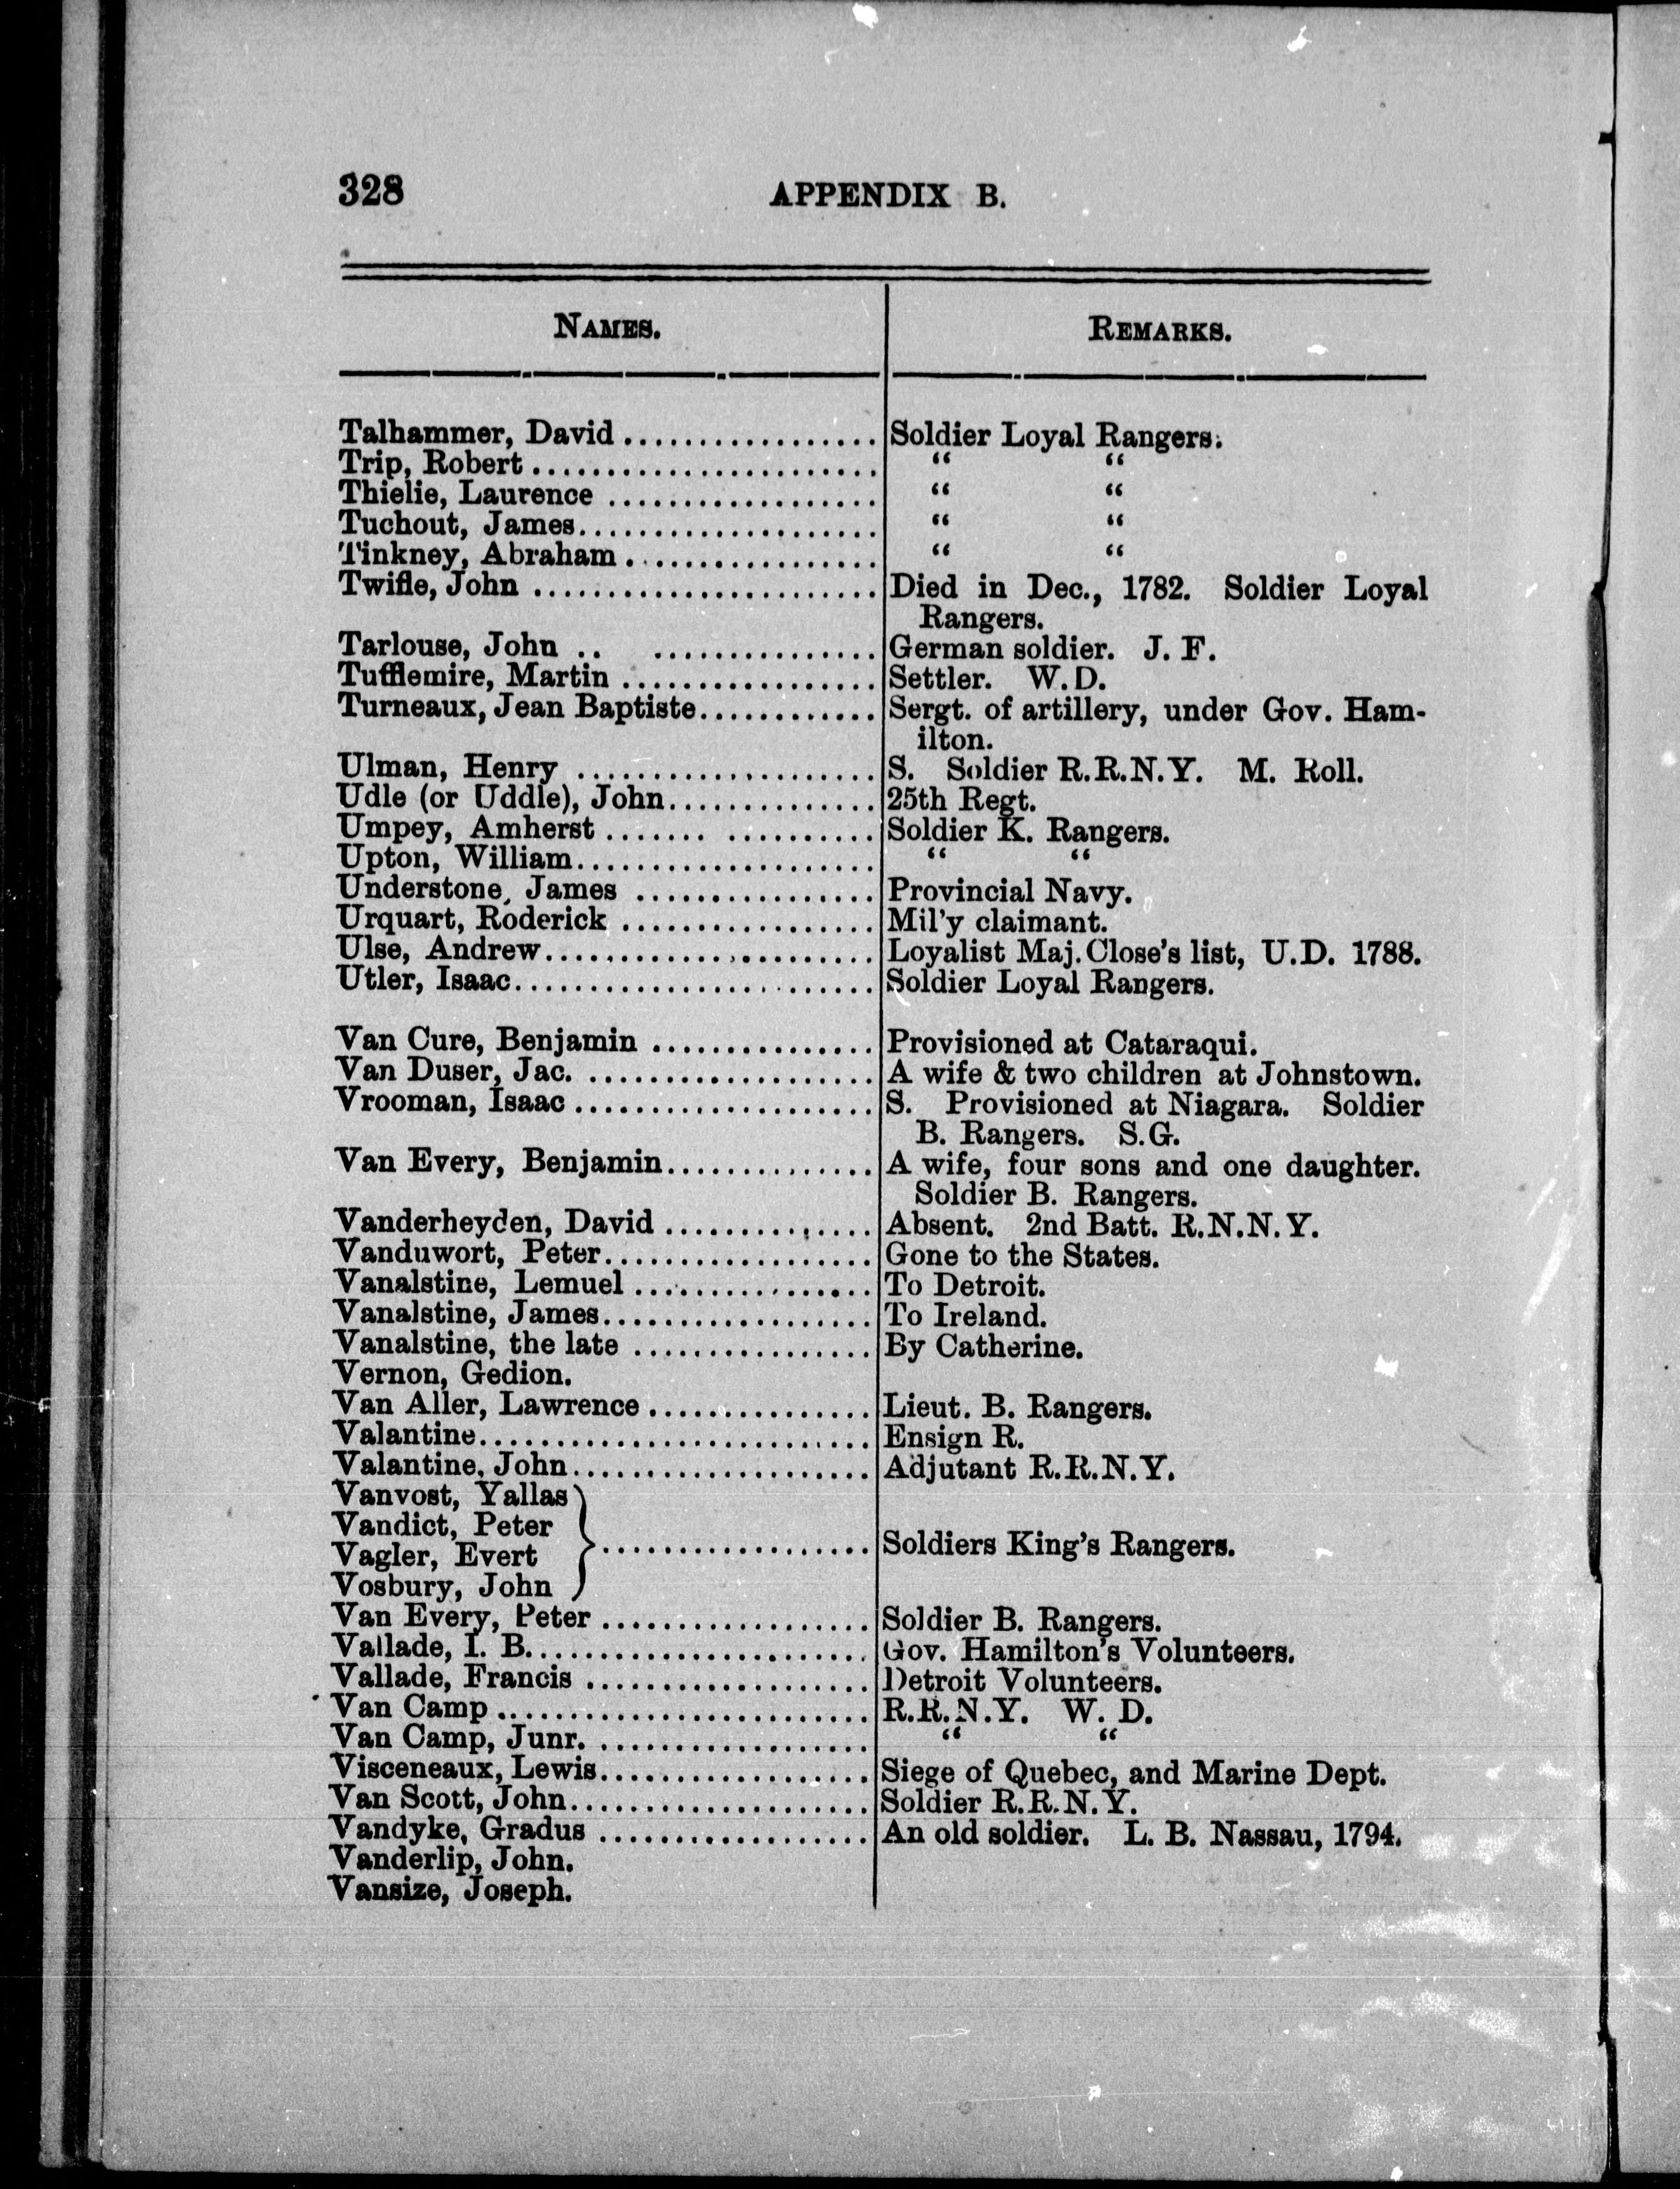 328 APPENDIX B.
NAMES. REMARKS.
Talhammer, David ................. Soldier Loyal Rangers.
Trip, Robert ....................... " "
Thielie, Laurence .................. " "
Tuchout, James.................... " "
Tinkney, Abraham ................. " "
Twifle, John ....................... Died in Dec., 1782. Soldier Loyal
Rangers.
Tarlouse, John .. ............... German soldier. J. F.
Tufflemire, Martin ................. Settler. W.D.
Turneaux, Jean Baptiste............ Sergt. of artillery, under Gov. Ham-
ilton.
Ulman, Henry .................... S. Soldier R.R.N.Y. M. Roll.
Udle (or Uddle), John.............. 25th Regt.
Umpey, Amherst ....... .......... Soldier K. Rangers.
Upton, William.................... " "
Understone, James ................ Provincial Navy.
Urquart, Roderick ................. Mil'y claimant.
Ulse, Andrew...................... Loyalist Maj. Close's list, U.D. 1788.
Utler, Isaac........................ Soldier Loyal Rangers.
Van Cure, Benjamin ............... Provisioned at Cataraqui.
Van Duser, Jac. ................... A wife & two children at Johnstown.
Vrooman, Isaac .................... S. Provisioned at Niagara. Soldier
B. Rangers. S.G.
Van Every, Benjamin.............. A wife, four sons and one daughter.
Soldier B. Rangers.
Vanderheyden, David .............. Absent. 2nd Batt. R.N.N.Y.
Vanduwort, Peter.................. Gone to the States.
Vanalstine, Lemuel ................ To Detroit.
Vanalstine, James.................. To Ireland.
Vanalstine, the late ................ By Catherine.
Vernon, Gedion.
Van Aller, Lawrence ............... Lieut. B. Rangers.
Valantine.......................... Ensign R.
Valantine, John.................... Adjutant R.R.N.Y.
Vanvost, Yallas
Vandict, Peter
Vagler, Evert } .................. Soldiers King's Rangers.
Vosbury, John
Van Every, Peter .................. Soldier B. Rangers.
Vallade, I. B....................... Gov. Hamilton's Volunteers.
Vallade, Francis ................... Detroit Volunteers.
Van Camp ......................... R.R.N.Y. W. D.
Van Camp, Junr. .................. " "
Visceneaux, Lewis.................. Siege of Quebec, and Marine Dept.
Van Scott, John.................... Soldier R.R.N.Y.
Vandyke, Gradus .................. An old soldier. L. B. Nassau, 1794.
Vanderlip, John.
Vansize, Joseph.